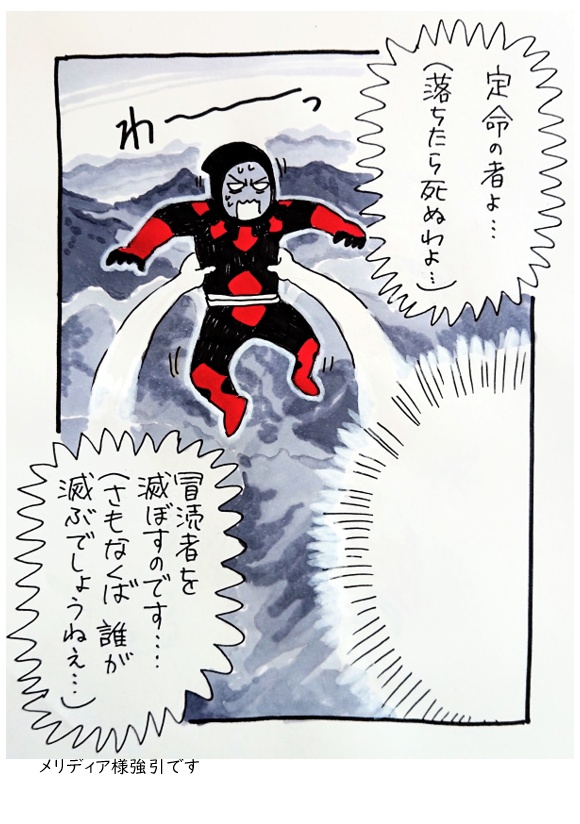 定命の者よ…
(落ちたら死ぬわよ…)
わーーーっ
冒涜者を
滅ぼすのです‥‥
(さもなくば 誰が
滅ぶでしょうねぇ…)
メリディア様強引です